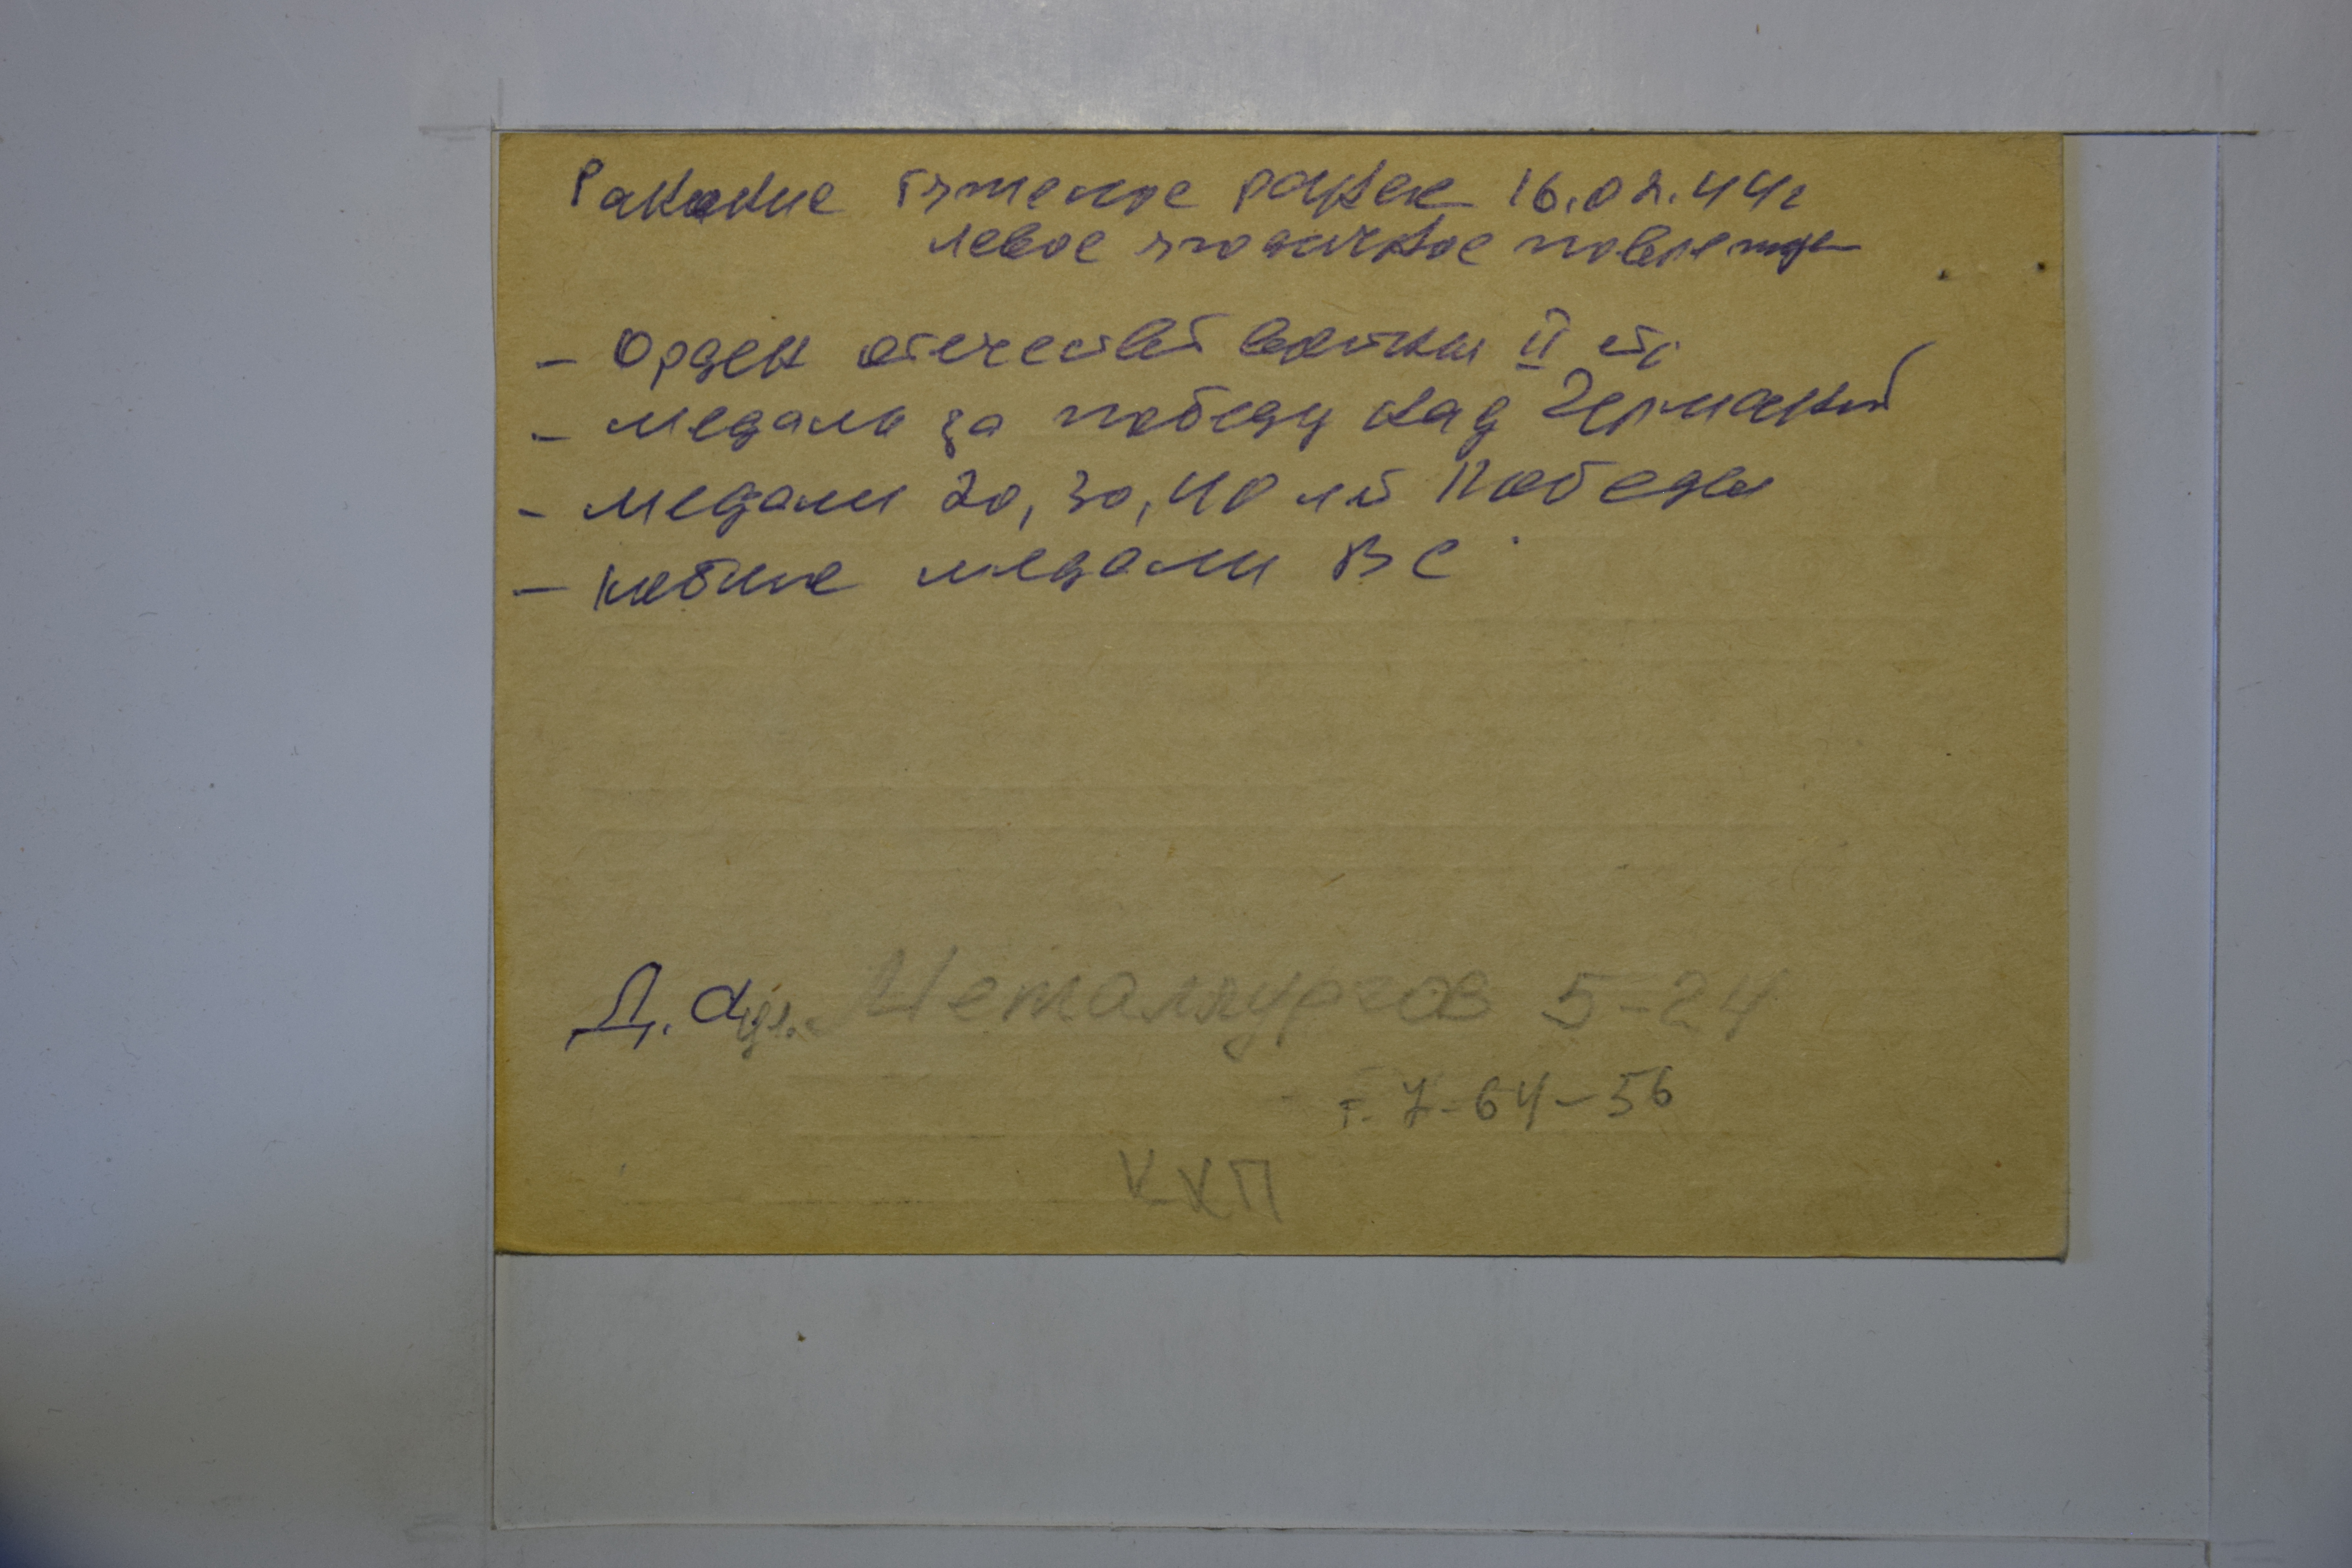 Ранение тяжелое ранен 16.02.44г
левое ягодичное поврежде
- Орден отечествт войны II ст.
- медаль за победу над Германий
- медали 20, 30, 40 лт Победы
- юбил медали ВС
Д. а ул. Металлургов 5-24
т. 7-64-56
ККП